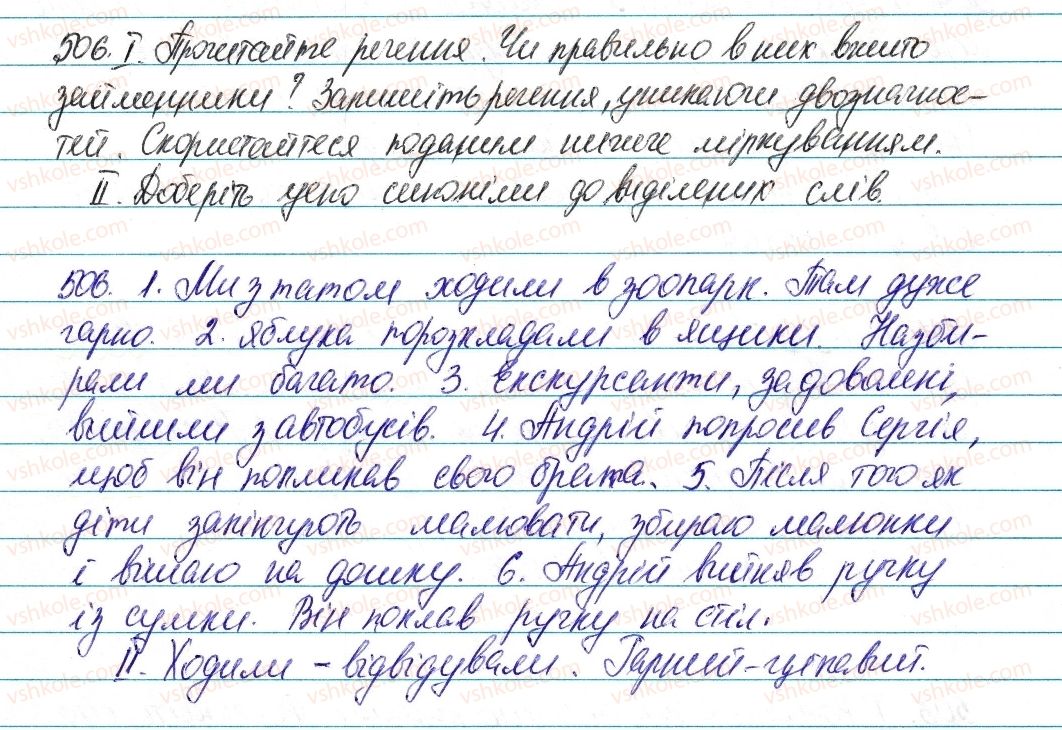 506. I. Прочитайте речення. Чи правильно в них вжито
займенники? Запишіть речення, уникаючи двозначнос-
тей. Скористайтеся поданим нижче міркуванням.
II. Доберіть усно синоніми до виділених слів.
506. 1. Ми з татом ходили в зоопарк. Там дуже
гарно. 2. Яблука порозкладали в ящики. Назби-
рали ми багато. 3. Екскурсанти, задоволені,
вийшли з автобусів. 4. Андрій попросив Сергія,
щоб він покликав свого брата. 5. Після того як
діти закінчують малювати, збираю малюнки
і вішаю на дошку. 6. Андрій вийняв ручку
із сумки. Він поклав ручку на стіл.
II. Ходили – відвідували. Гарний – цікавий.